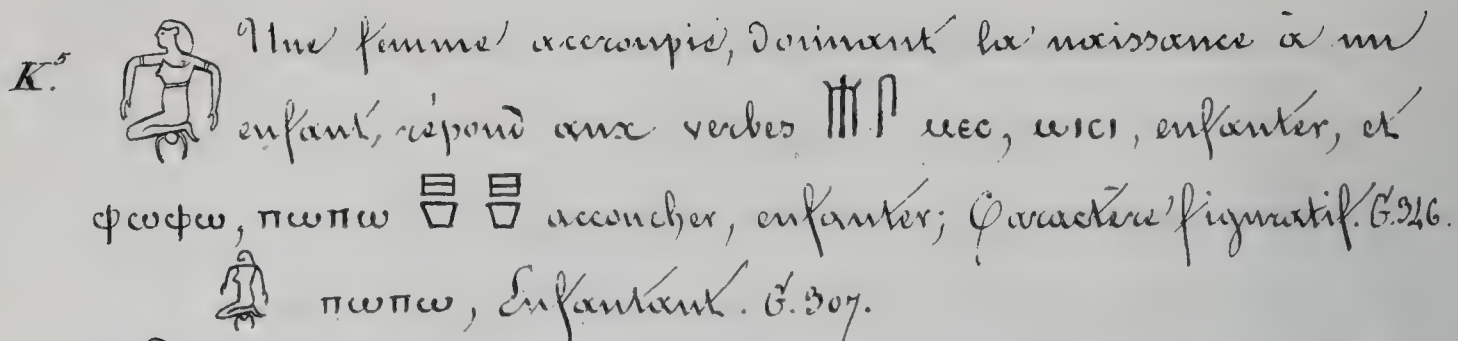 K.⁵ Une femme accroupie, donnant la naissance à un
enfant, répond aux verbes 𓄟𓋴 ⲙⲉⲥ, ⲙⲓⲥⲓ, enfanter, et
ⲫⲱⲫⲱ, ⲡⲱⲡⲱ accoucher, enfanter; Caractère figuratif. G. 346.
ⲡⲱⲡⲱ, Enfantant. G. 307.